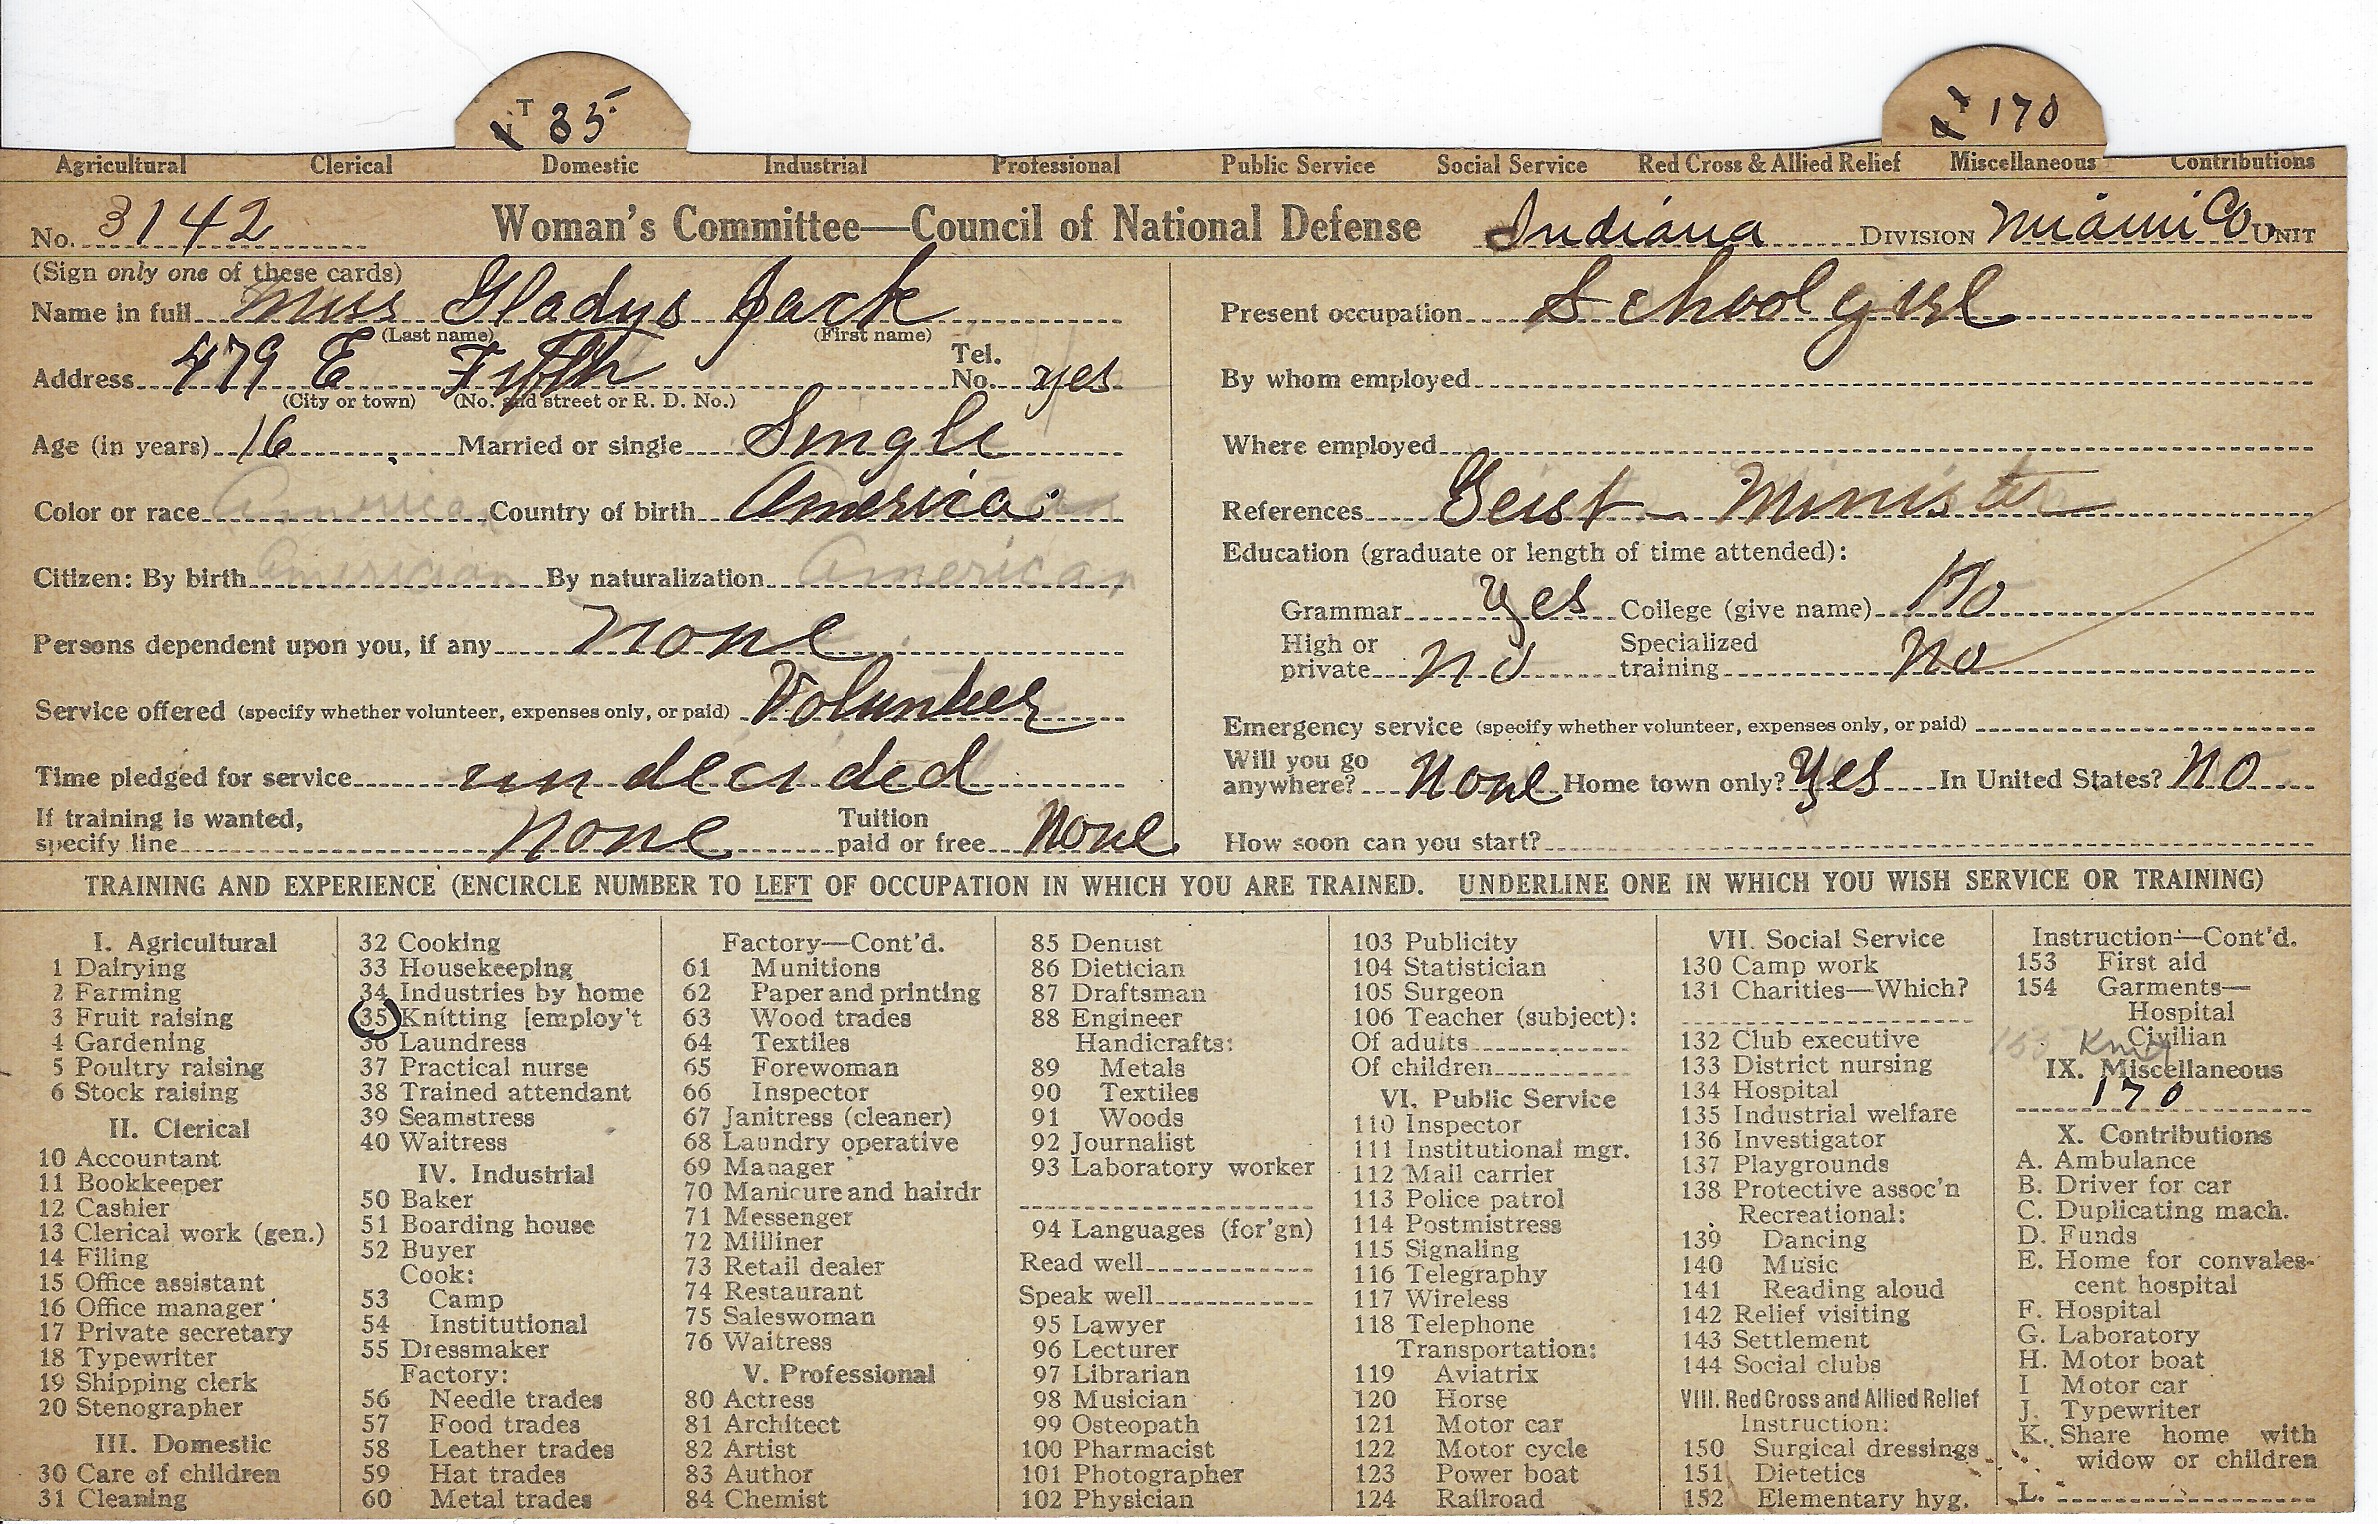 T 35
170
Agricultural Clerical Domestic Industrial Professional Public Service Social Service Red Cross & Allied Relief Miscellaneous Contributions
No. 3142 Woman's Committee—Council of National Defense Indiana DIVISION Miami Co. UNIT
(Sign only one of these cards)
Name in full Miss Gladys Jack
(Last name) (First name)
Address 479 E Fifth Tel. No. yes
(City or town) (No. and street or R. D. No.)
Age (in years) 16 Married or single Single
Color or race America Country of birth America
Citizen: By birth American By naturalization American
Persons dependent upon you, if any none
Service offered (specify whether volunteer, expenses only, or paid) Volunteer
Time pledged for service undecided
If training is wanted, specify line none Tuition paid or free None
Present occupation School girl
By whom employed
Where employed
References Geist - Minister
Education (graduate or length of time attended):
Grammar Yes College (give name) No
High or private no Specialized training No
Emergency service (specify whether volunteer, expenses only, or paid)
Will you go anywhere? None Home town only? Yes In United States? No
How soon can you start?
TRAINING AND EXPERIENCE (ENCIRCLE NUMBER TO LEFT OF OCCUPATION IN WHICH YOU ARE TRAINED. UNDERLINE ONE IN WHICH YOU WISH SERVICE OR TRAINING)
I. Agricultural
1 Dairying
2 Farming
3 Fruit raising
4 Gardening
5 Poultry raising
6 Stock raising
II. Clerical
10 Accountant
11 Bookkeeper
12 Cashier
13 Clerical work (gen.)
14 Filing
15 Office assistant
16 Office manager
17 Private secretary
18 Typewriter
19 Shipping clerk
20 Stenographer
III. Domestic
30 Care of children
31 Cleaning
32 Cooking
33 Housekeeping
34 Industries by home
35 Knitting [employ't
36 Laundress
37 Practical nurse
38 Trained attendant
39 Seamstress
40 Waitress
IV. Industrial
50 Baker
51 Boarding house
52 Buyer
Cook:
53 Camp
54 Institutional
55 Dressmaker
Factory:
56 Needle trades
57 Food trades
58 Leather trades
59 Hat trades
60 Metal trades
Factory—Cont'd.
61 Munitions
62 Paper and printing
63 Wood trades
64 Textiles
65 Forewoman
66 Inspector
67 Janitress (cleaner)
68 Laundry operative
69 Manager
70 Manicure and hairdr
71 Messenger
72 Milliner
73 Retail dealer
74 Restaurant
75 Saleswoman
76 Waitress
V. Professional
80 Actress
81 Architect
82 Artist
83 Author
84 Chemist
85 Dentist
86 Dietician
87 Draftsman
88 Engineer
Handicrafts:
89 Metals
90 Textiles
91 Woods
92 Journalist
93 Laboratory worker
94 Languages (for'gn)
Read well
Speak well
95 Lawyer
96 Lecturer
97 Librarian
98 Musician
99 Osteopath
100 Pharmacist
101 Photographer
102 Physician
103 Publicity
104 Statistician
105 Surgeon
106 Teacher (subject):
Of adults
Of children
VI. Public Service
110 Inspector
111 Institutional mgr.
112 Mail carrier
113 Police patrol
114 Postmistress
115 Signaling
116 Telegraphy
117 Wireless
118 Telephone
Transportation:
119 Aviatrix
120 Horse
121 Motor car
122 Motor cycle
123 Power boat
124 Railroad
VII. Social Service
130 Camp work
131 Charities—Which?
132 Club executive
133 District nursing
134 Hospital
135 Industrial welfare
136 Investigator
137 Playgrounds
138 Protective assoc'n
Recreational:
139 Dancing
140 Music
141 Reading aloud
142 Relief visiting
143 Settlement
144 Social clubs
VIII. Red Cross and Allied Relief
Instruction:
150 Surgical dressings
151 Dietetics
152 Elementary hyg.
Instruction—Cont'd.
153 First aid
154 Garments—
Hospital
Civilian
IX. Miscellaneous
170
X. Contributions
A. Ambulance
B. Driver for car
C. Duplicating mach.
D. Funds
E. Home for convalescent hospital
F. Hospital
G. Laboratory
H. Motor boat
I Motor car
J. Typewriter
K. Share home with
widow or children
L.